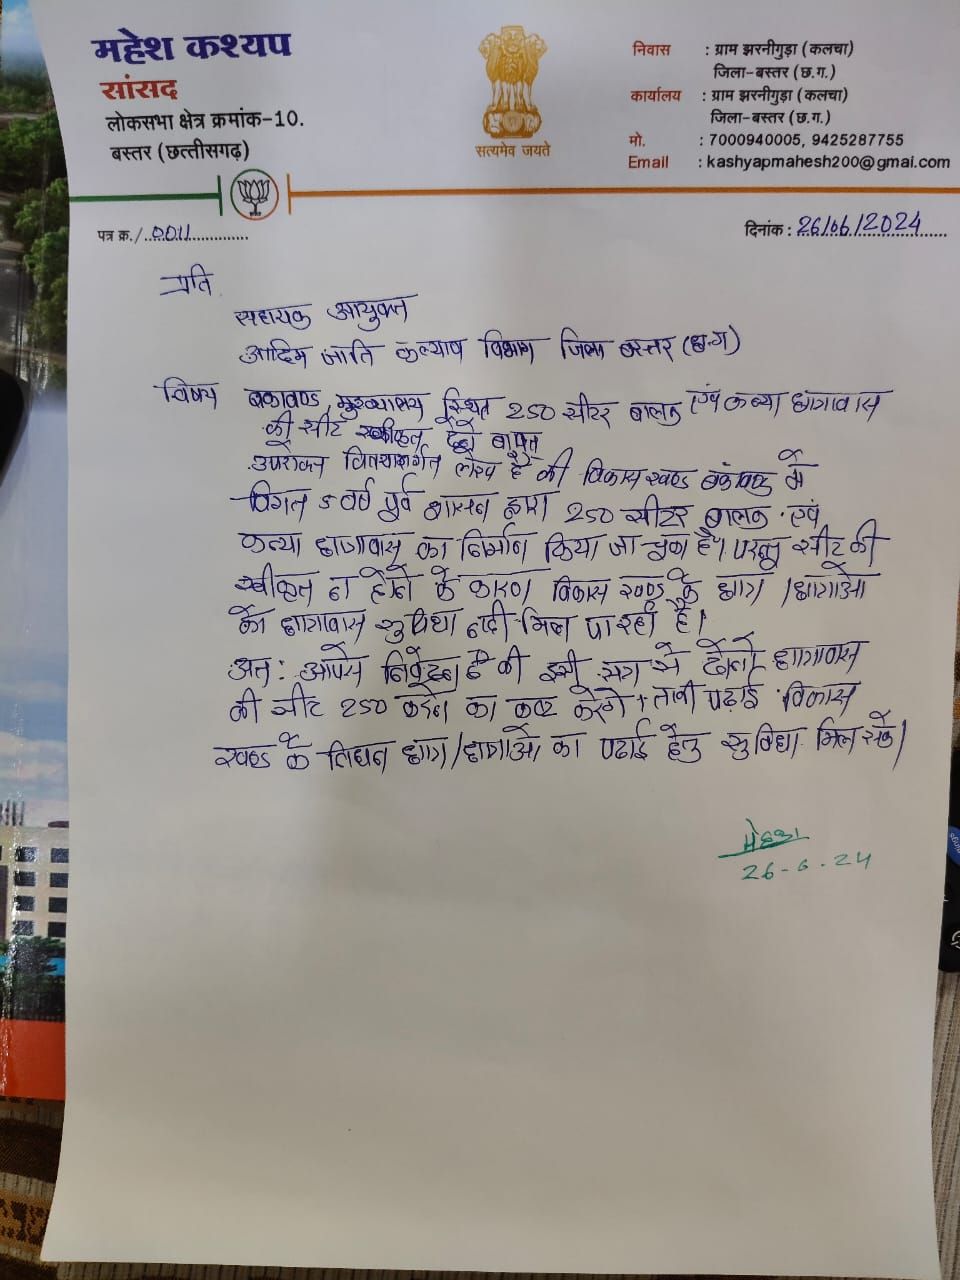 महेश कश्यप
सांसद
लोकसभा क्षेत्र क्रमांक-10.
बस्तर (छत्तीसगढ़)
सत्यमेव जयते
निवास : ग्राम झरनीगुड़ा (कलचा)
जिला-बस्तर (छ.ग.)
कार्यालय : ग्राम झरनीगुड़ा (कलचा)
जिला-बस्तर (छ.ग.)
मो. : 7000940005, 9425287755
Email : kashyapmahesh200@gmai.com
पत्र क्र./ 0011
दिनांक : 26/06/2024
प्रति
सहायक आयुक्त
आदिम जाति कल्याण विभाग जिला बस्तर (छ.ग)
विषय बकावण्ड मुख्यालय स्थित 250 सीटर बालक एवं कन्या छात्रावास
की सीट स्वीकृत हेतु बाबत
उपरोक्त विषयान्तर्गत लेख है की विकास खण्ड बकावण्ड में
विगत 5 वर्ष पूर्व शासन द्वारा 250 सीटर बालक एवं
कन्या छात्रावास का निर्माण किया जा चुका है। परन्तु सीट की
स्वीकृत न होने के कारण विकास खण्ड के छात्र /छात्राओं
को छात्रावास सुविधा नही मिल पा रही है।
अतः आपसे निवेदन है की इसी सत्र से दोनो छात्रावास
की सीट 250 करने का कष्ट करेंगे ताकी पढ़ाई विकास
खण्ड के निर्धन छात्र/छात्राओं का पढाई हेतु सुविधा मिल सके।
26-6-24